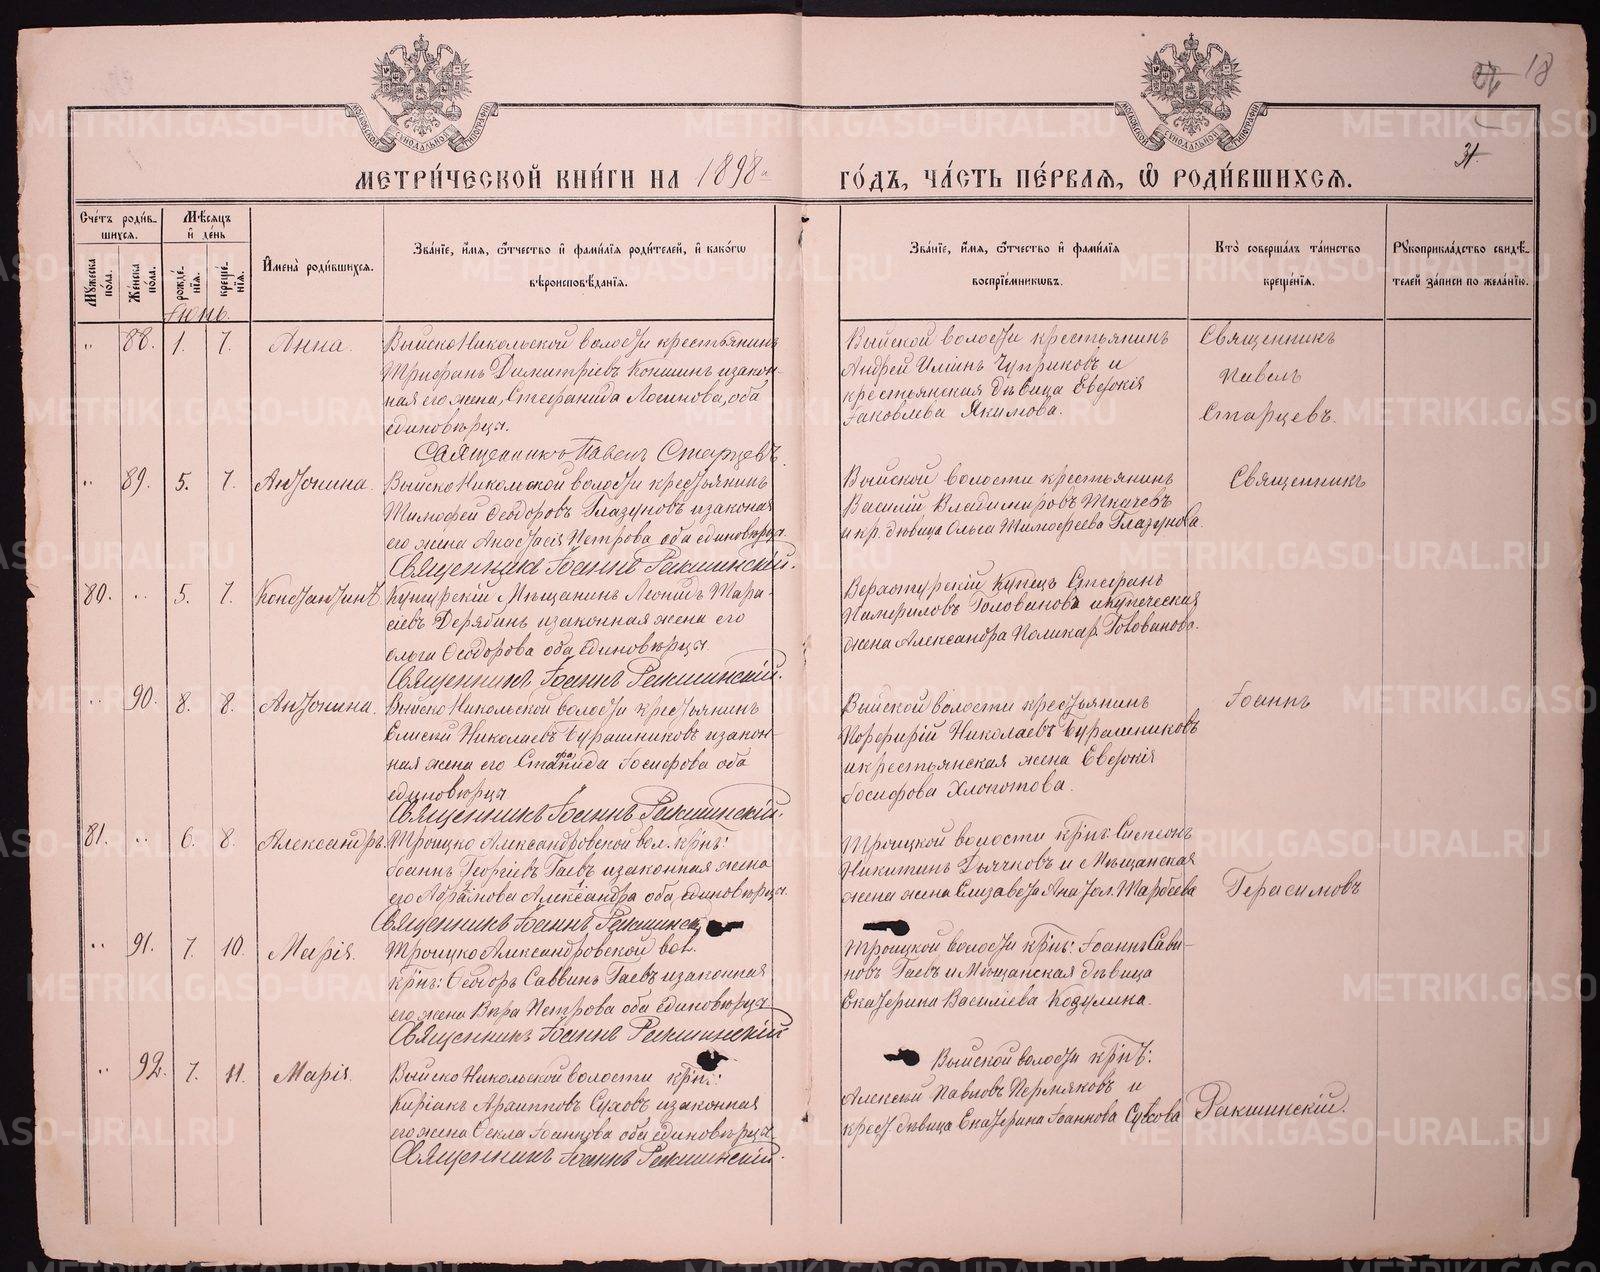 18
31.
МОСКОВСКОЙ СѴНОДАЛЬНОЙ ТИПОГРАФІИ
МОСКОВСКОЙ СѴНОДАЛЬНОЙ ТИПОГРАФІИ
МЕТРИ́ЧЕСКОЙ КНИ́ГИ НА 1898 ГО́ДЪ, ЧА́СТЬ ПЕ́РВАЯ, Ѡ РОДИ́ВШИХСЯ.
Сче́тъ роди́вшихся.
Мꙋжеска по́ла.
Же́нска по́ла.
Мѣ́сяцъ и҆ де́нь
рожде́нїя.
креще́нїя.
И҆мена̀ роди́вшихся.
Зва́нїе, и҆́мя, ѻ҆́тчество и҆ фами́лїя роди́телей, и҆ како́гѡ
вѣроисповѣ́данїя.
Зва́нїе, и҆́мя, ѻ҆́тчество и҆ фами́лїя
воспрїе́мникѡвъ.
Кто̀ соверша́лъ та́инство
креще́нїя.
Рꙋкоприкла́дство свидѣ́телей за́писи по жела́нїю.
Іюнь.
" 88. 1. 7. Анна.
Выйско Никольской волости крестьянинъ
Трифанъ Димитріевъ Кокшинъ и закон-
ная его жена, Стефанида Логинова, оба
единовѣрцы.
Священникъ Павелъ Старцевъ.
Выйской волости крестьянинъ
Андрей Ильинъ Чуприковъ и
крестьянская дѣвица Евдокія
Іаковлева Якимова.
Священникъ
Павелъ
Старцевъ.
" 89. 5. 7. Антонина.
Выйско Никольской волости крестьянинъ
Тимофей Ѳеодоровъ Глазуновъ и законая
его жена Анастасія Петрова оба единовѣрцы.
Священникъ Іоаннъ Ракшинскій.
Выйской волости крестьянинъ
Василій Владимировъ Ткачевъ
и кр. дѣвица Ольга Тимофеева Глазунова.
Священникъ
80. " 5. 7. Константинъ
Кунгурскій Мѣщанинъ Леонидъ Тара-
сіевъ Дерябинъ и законная жена его
Ольга Ѳеодорова оба единовѣрцы.
Священникъ Іоаннъ Ракшинскій.
Верхотурскій Купецъ Стефанъ
Памфиловъ Головановъ и купеческая
жена Александра Поликар. Голованова.
" 90. 8. 8. Антонина.
Выйско Никольской волости крестьянинъ
Елисей Николаевъ Бурашниковъ и закон-
ная жена его Стефанида Іосифова оба
единовѣрцы
Священникъ Іоаннъ Ракшинскій.
Выйской волости крестьянинъ
Порфирій Николаевъ Бурашниковъ
и крестьянская жена Евдокія
Іосифова Хлопотова.
Іоаннъ
81. " 6. 8. Александръ.
Троицко Александровской вол. кр̃нъ:
Іоаннъ Георгіевъ Гаевъ и законная жена
его Абрамова Александра оба единовѣрцы.
Священникъ Іоаннъ Ракшинск
Троицкой волости кр̃нъ: Симеонъ
Никитинъ Дьячковъ и Мѣщанская
жена жена Елизавета Анатол. Тарасева
Герасимовъ
" 91. 7. 10. Марія.
Троицко Александровской вол.
кр̃нъ: Ѳеодоръ Саввинъ Гаевъ и законная
его жена Вѣра Петрова оба единовѣрцы
Священникъ Іоаннъ Ракшинскій
Троицкой волости кр̃нъ: Іоаннъ Сави-
новъ Гаевъ и Мѣщанская дѣвица
Екатерина Василіева Кодулина.
" 92. 7. 11. Марія.
Выйско Никольской волости кр̃нъ:
Киріакъ Архипповъ Суховъ и законная
его жена Ѳекла Іоаннова оба единовѣрцы.
Священникъ Іоаннъ Ракшинскій.
Выйской волости кр̃нъ:
Алексѣй Павловъ Пермяковъ и
крест. дѣвица Екатерина Іоаннова Сухова
Ракшинскій.
METRIKI.GASO-URAL.RU